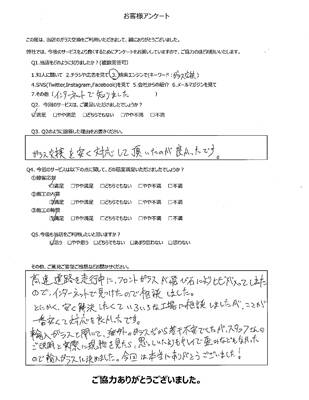 お客様アンケート
この度は、当店のガラス交換をご利用いただきまして、誠にありがとうございました。
弊社では、今後のサービスをより良くするためにアンケートをお願いしていますので、ご協力のほどお願いいたします。
Q1. 当店をどのように知りましたか？(複数回答可)
1.知人に聞いて 2.チラシや広告を見て 3.検索エンジンで(キーワード：ガラス交換)
4.SNS(Twitter,Instagram,Facebook)を見て 5.会社からの紹介 6.メールマガジンを見て
7.その他(インターネットで知りました)
Q2. 今回のサービスは、ご満足いただけましたでしょうか？
☑満足 □やや満足 □どちらでもない □やや不満 □不満
Q3. Q2のように回答した理由をお書きください。
ガラス交換を安く対応して頂いたのが良かったです。
Q4. 今回のサービスは以下の点に関して、どの程度満足いただけましたでしょうか？
①接客応対
☑満足 □やや満足 □どちらでもない □やや不満 □不満
②施工の内容
☑満足 □やや満足 □どちらでもない □やや不満 □不満
③施工の時間
☑満足 □やや満足 □どちらでもない □やや不満 □不満
Q5. 今後も当店をご利用したいと思いますか？
☑思う □やや思う □どちらでもない □あまり思わない □思わない
その他、ご意見ご要望など自由にお聞かせください。
高速道路を走行中に、フロントガラスが飛び石によりヒビが入ってしまた
ので、インターネットで見つけたので相談しました。
とにかく、安く解決したくていろいろな工場に相談しましたが、ここが
一番安くて対応も良かったです。
輸入ガラスと聞いて、海外のガラスだから少し不安でしたが、スタッフさんの
ご説明と実際に現物を見たら、思しいたよりもキレイで歪みなどもなかった
ので輸入ガラスに決めました。今回は本当にありがとうございました！
ご協力ありがとうございました。